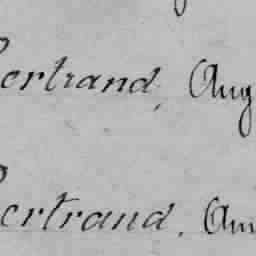 Bertrand, Aug
Bertrand, Am